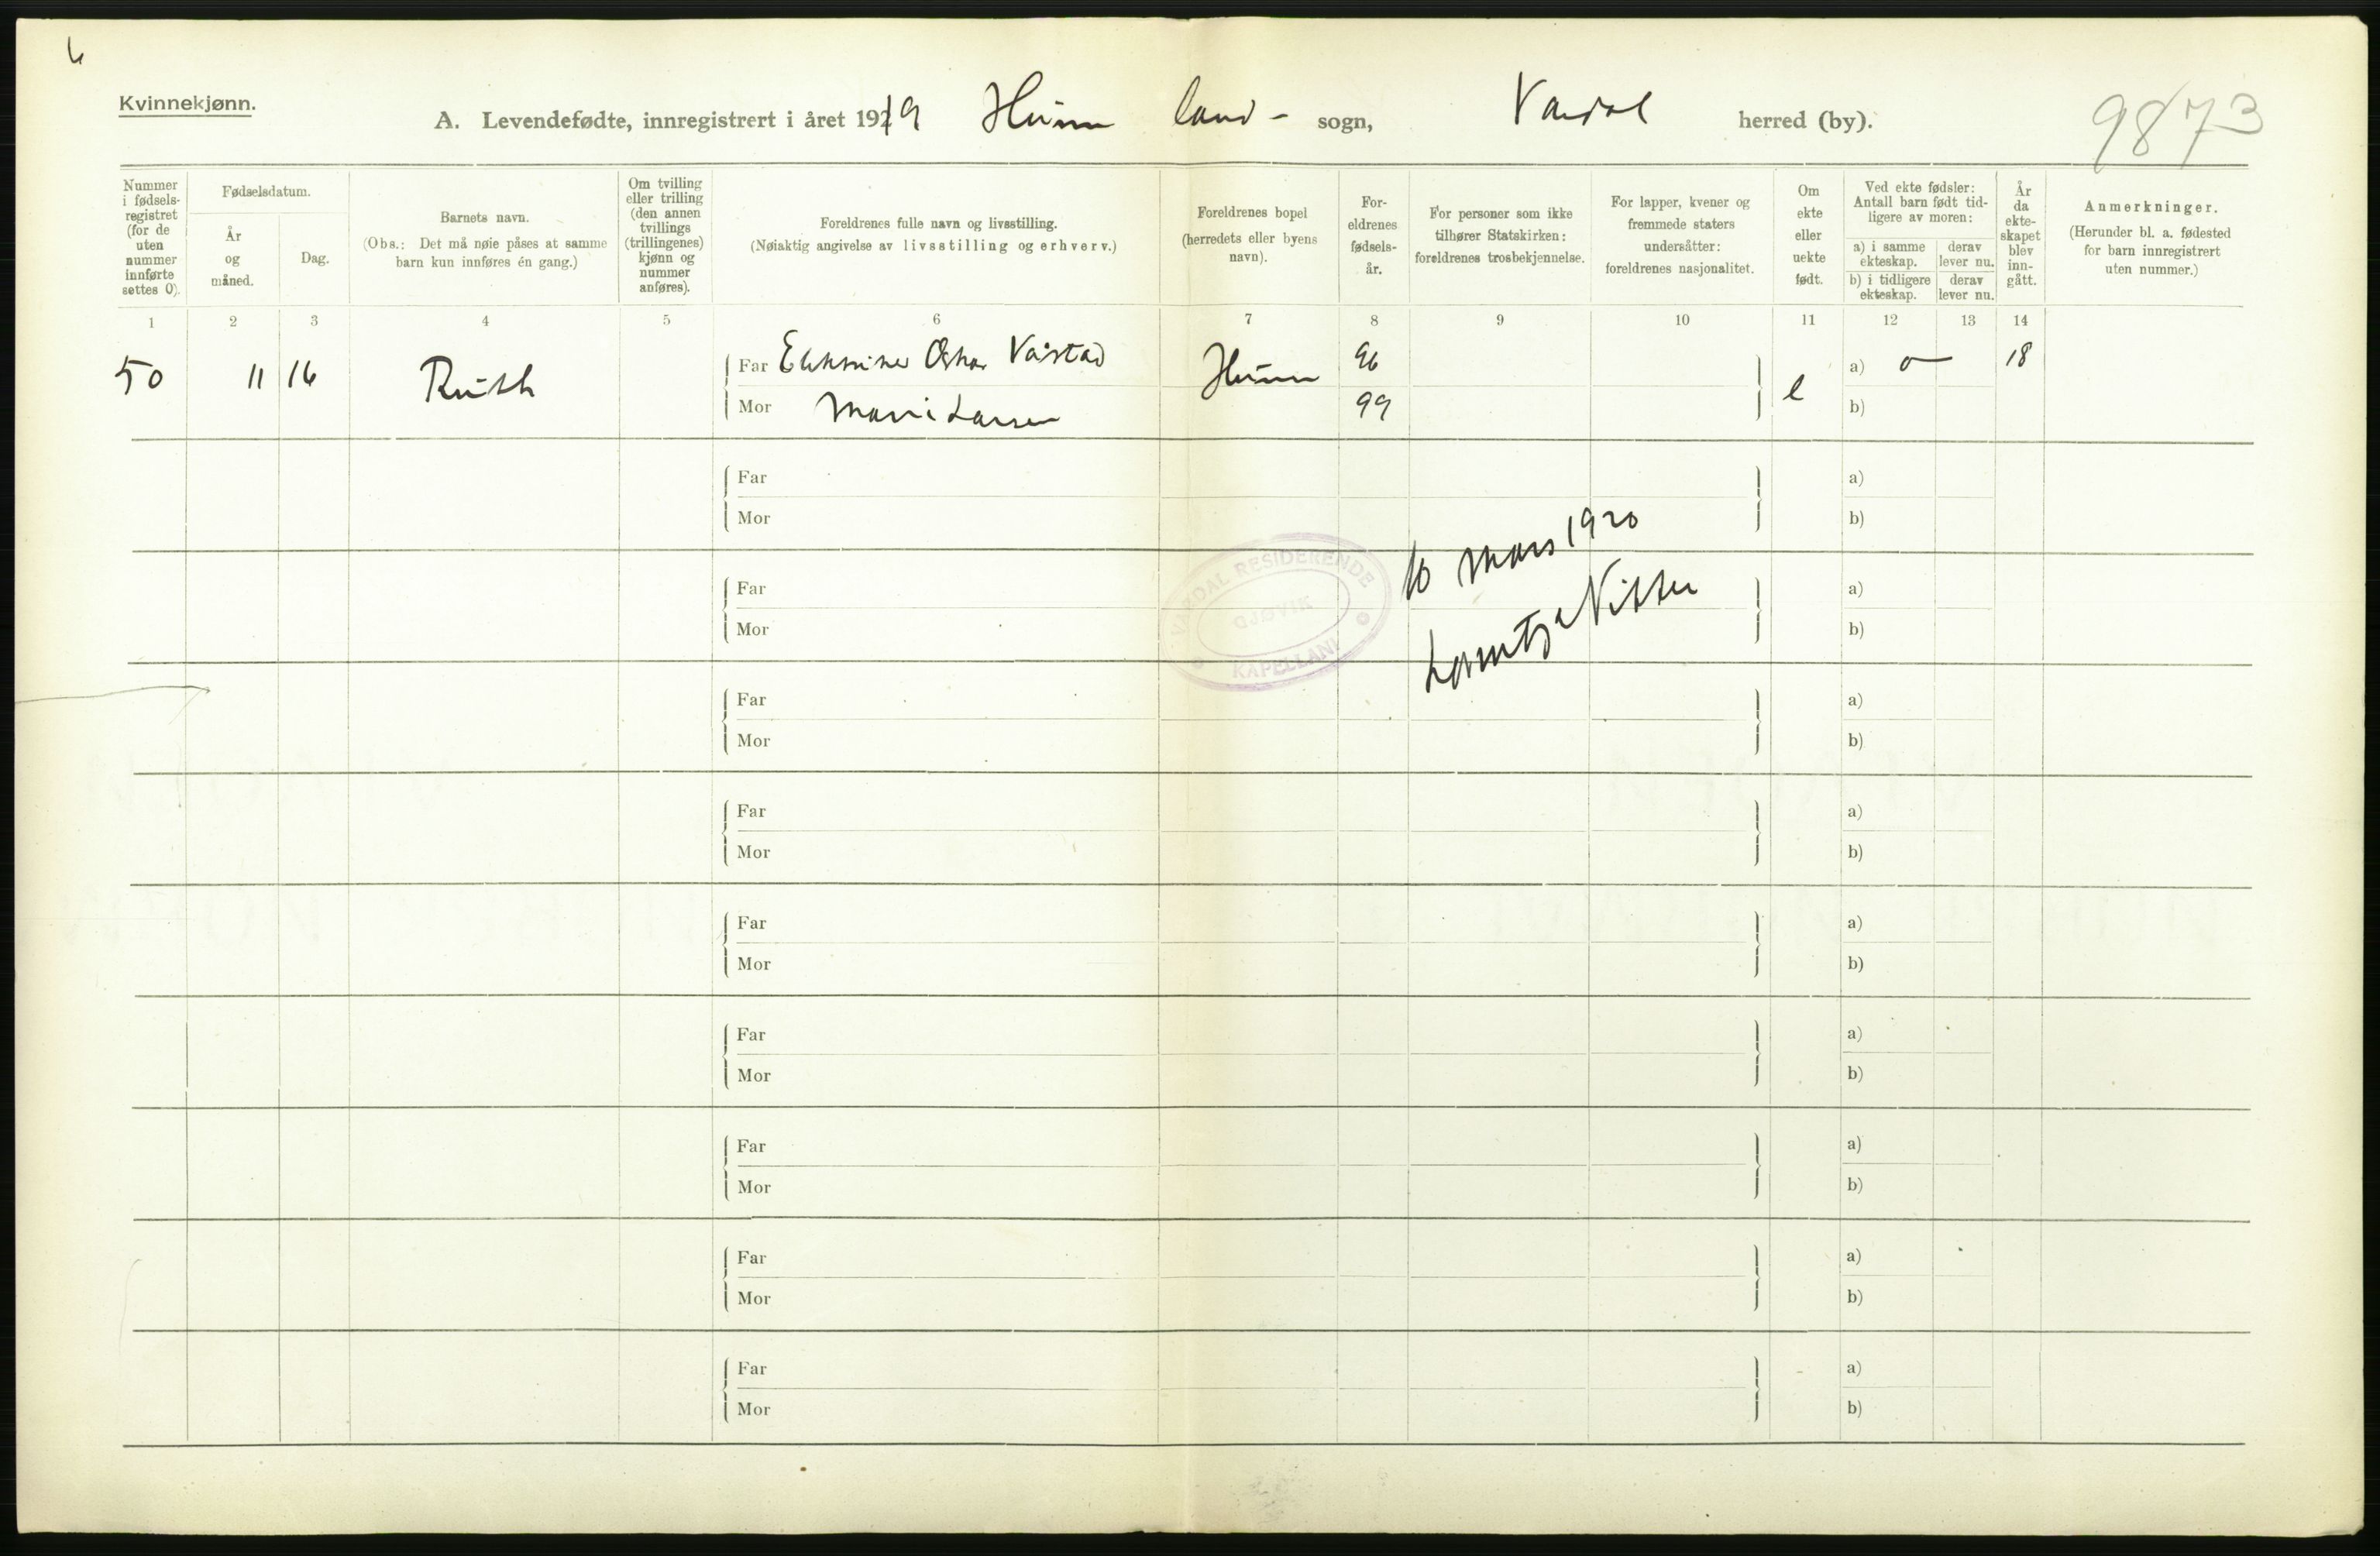 6
Kvinnekjønn.
A. Levendefødte, innregistrert i året 1919 Hunn land- sogn, Vardal herred (by).
9873
Nummer i fødsels-registret (for de uten nummer innførte settes 0).
Fødselsdatum.
År og måned.
Dag.
Barnets navn.
(Obs.: Det må nøie påses at samme barn kun innføres én gang.)
Om tvilling eller trilling (den annen tvillings (trillingenes) kjønn og nummer anføres).
Foreldrenes fulle navn og livsstilling.
(Nøiaktig angivelse av livsstilling og erhverv.)
Foreldrenes bopel (herredets eller byens navn).
For-eldrenes fødsels-år.
For personer som ikke tilhører Statskirken: foreldrenes trosbekjennelse.
For lapper, kvener og fremmede staters undersåtter: foreldrenes nasjonalitet.
Om ekte eller uekte født.
Ved ekte fødsler: Antall barn født tid-ligere av moren:
a) i samme ekteskap.
derav lever nu.
b) i tidligere ekteskap.
derav lever nu.
År da ekte-skapet blev inn-gått.
Anmerkninger.
(Herunder bl. a. fødested for barn innregistrert uten nummer.)
1 2 3 4 5 6 7 8 9 10 11 12 13 14
50 11 16 Ruth Far Oskar Hunn 96 e a) 0 18
Mor Marie Larsen 99 b)
Far a)
Mor b)
10 mars 1920
VARDAL RESIDERENDE KAPELLANI
GJØVIK
Far a)
Mor b)
Lorentz Nissen
Far a)
Mor b)
Far a)
Mor b)
Far a)
Mor b)
Far a)
Mor b)
Far a)
Mor b)
Far a)
Mor b)
Far a)
Mor b)